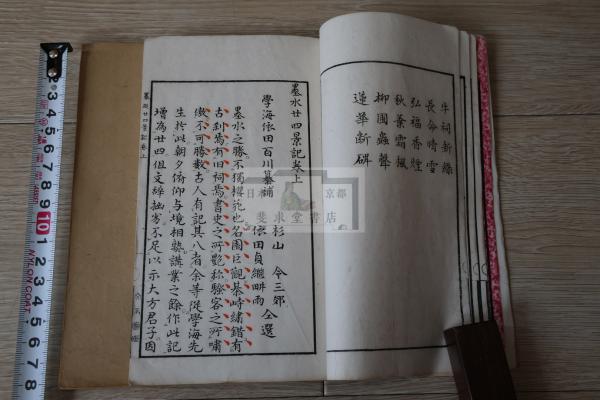 牛祠新綠
長命晴雪
弘福香煙
秋葉霜楓
柳園蟲聲
蓮華斷碑
墨水廿四景記卷上
學海依田百川纂補
杉山 令三郊
依田貞繼畊雨 仝選
墨水之勝不獨櫻花也名園巨觀棊峙繡錯有
古刹焉有旧祠焉書史之所艷称騷客之所嘯
傲不可勝數古人有記其八者余等從學海先
生於此朝夕倚仰与境相熟講業之餘作此記
增為廿四但文辭拙劣不足以示大方君子因
墨水廿四景記卷上
日本 京都
斐求堂書店